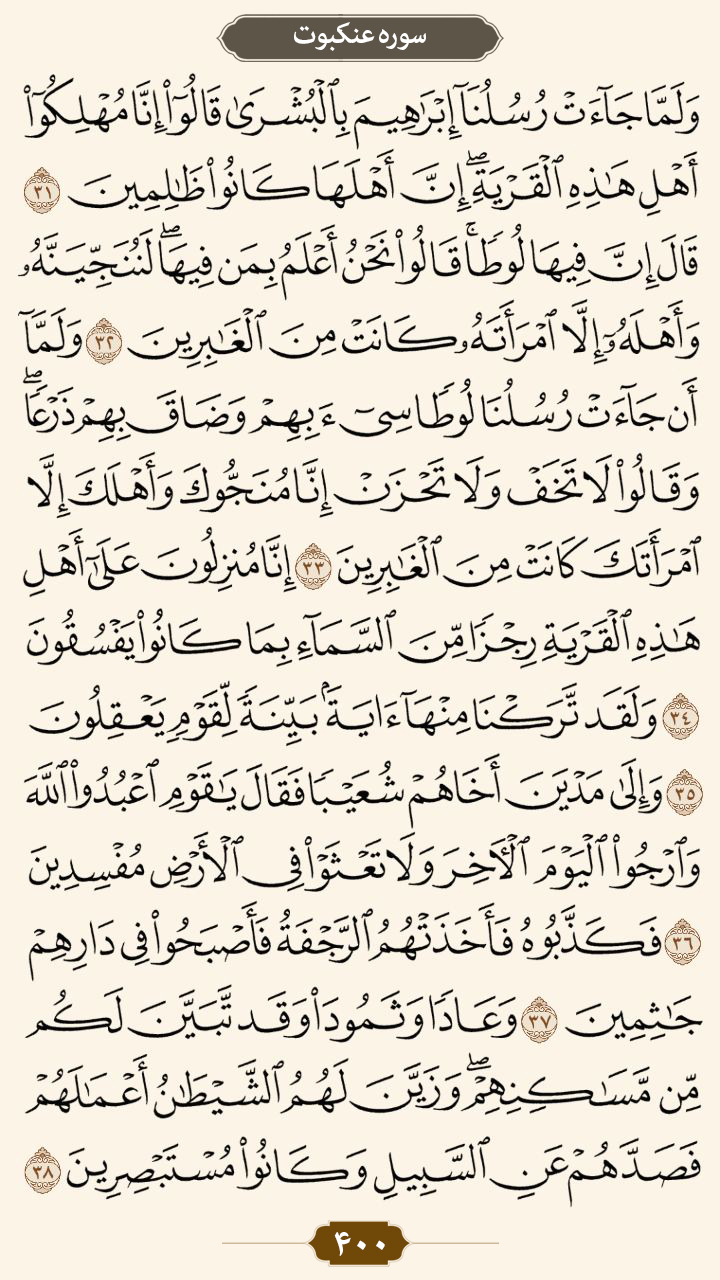 سوره عنکبوت
وَلَمَّا جَآءَتۡ رُسُلُنَآ إِبۡرَٰهِيمَ بِٱلۡبُشۡرَىٰ قَالُوٓاْ إِنَّا مُهۡلِكُوٓاْ
أَهۡلِ هَٰذِهِ ٱلۡقَرۡيَةِۖ إِنَّ أَهۡلَهَا كَانُواْ ظَٰلِمِينَ ٣١
قَالَ إِنَّ فِيهَا لُوطٗاۚ قَالُواْ نَحۡنُ أَعۡلَمُ بِمَن فِيهَاۖ لَنُنَجِّيَنَّهُۥ
وَأَهۡلَهُۥٓ إِلَّا ٱمۡرَأَتَهُۥ كَانَتۡ مِنَ ٱلۡغَٰبِرِينَ ٣٢ وَلَمَّآ
أَن جَآءَتۡ رُسُلُنَا لُوطٗا سِيٓءَ بِهِمۡ وَضَاقَ بِهِمۡ ذَرۡعٗاۖ
وَقَالُواْ لَا تَخَفۡ وَلَا تَحۡزَنۡ إِنَّا مُنَجُّوكَ وَأَهۡلَكَ إِلَّا
ٱمۡرَأَتَكَ كَانَتۡ مِنَ ٱلۡغَٰبِرِينَ ٣٣ إِنَّا مُنزِلُونَ عَلَىٰٓ أَهۡلِ
هَٰذِهِ ٱلۡقَرۡيَةِ رِجۡزٗا مِّنَ ٱلسَّمَآءِ بِمَا كَانُواْ يَفۡسُقُونَ
٣٤ وَلَقَد تَّرَكۡنَا مِنۡهَآ ءَايَةَۢ بَيِّنَةٗ لِّقَوۡمٖ يَعۡقِلُونَ
٣٥ وَإِلَىٰ مَدۡيَنَ أَخَاهُمۡ شُعَيۡبٗا فَقَالَ يَٰقَوۡمِ ٱعۡبُدُواْ ٱللَّهَ
وَٱرۡجُواْ ٱلۡيَوۡمَ ٱلۡأٓخِرَ وَلَا تَعۡثَوۡاْ فِي ٱلۡأَرۡضِ مُفۡسِدِينَ
٣٦ فَكَذَّبُوهُ فَأَخَذَتۡهُمُ ٱلرَّجۡفَةُ فَأَصۡبَحُواْ فِي دَارِهِمۡ
جَٰثِمِينَ ٣٧ وَعَادٗا وَثَمُودَاْ وَقَد تَّبَيَّنَ لَكُم
مِّن مَّسَٰكِنِهِمۡۖ وَزَيَّنَ لَهُمُ ٱلشَّيۡطَٰنُ أَعۡمَٰلَهُمۡ
فَصَدَّهُمۡ عَنِ ٱلسَّبِيلِ وَكَانُواْ مُسۡتَبۡصِرِينَ ٣٨
۴۰۰